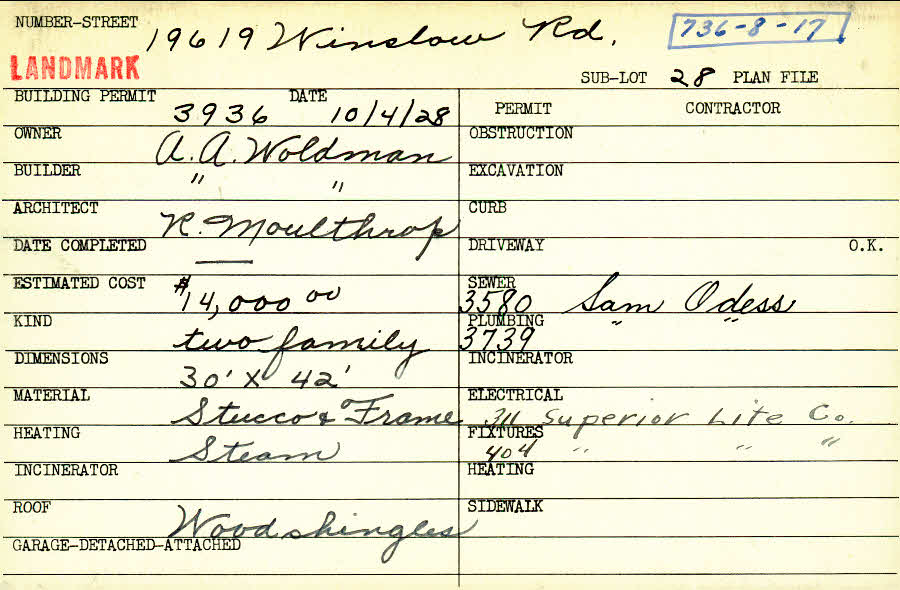 NUMBER-STREET 19619 Winslow Rd. 736-8-17
LANDMARK
SUB-LOT 28 PLAN FILE
BUILDING PERMIT 3936 DATE 10/4/28
PERMIT CONTRACTOR
OWNER A. A. Woldman
OBSTRUCTION
BUILDER " "
EXCAVATION
ARCHITECT R. Moulthrop
CURB
DATE COMPLETED —
DRIVEWAY O.K.
ESTIMATED COST $14,000 00
SEWER 3580 Sam Odess
KIND two family
PLUMBING 3739 " "
DIMENSIONS 30' X 42'
INCINERATOR
MATERIAL Stucco & Frame
ELECTRICAL 311 Superior Lite Co.
HEATING Steam
FIXTURES 404 " " "
INCINERATOR
HEATING
ROOF Wood shingles
SIDEWALK
GARAGE-DETACHED-ATTACHED